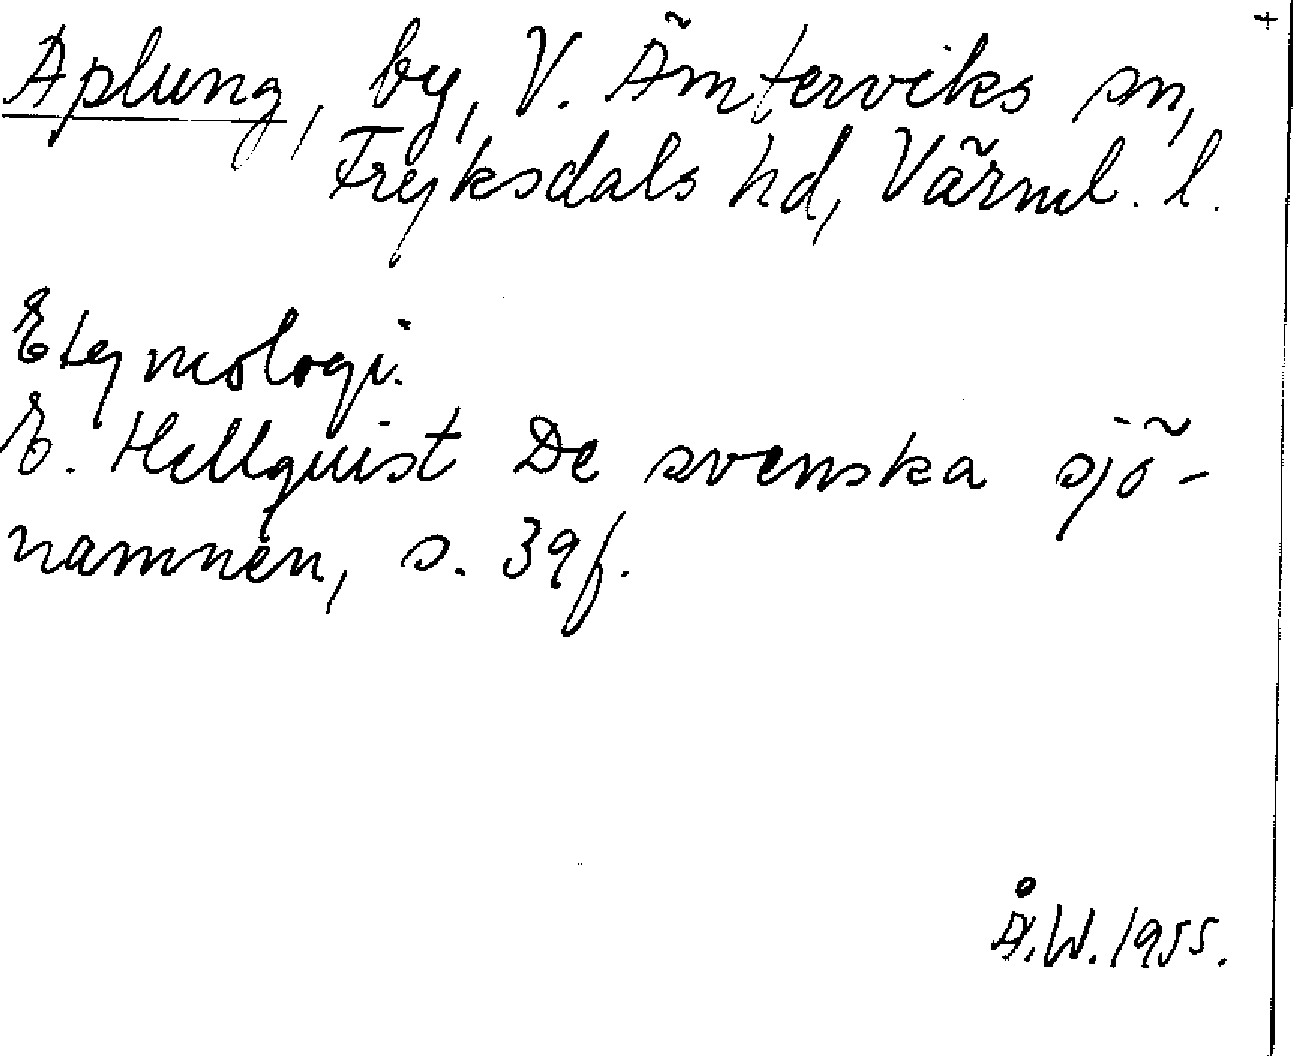 +
Aplung, by, V. Ämterviks sn,
Fryksdals hd, Värml. l.
Etymologi.
E. Hellquist De svenska sjö-
namnen, s. 39f.
Å.W. 1955.